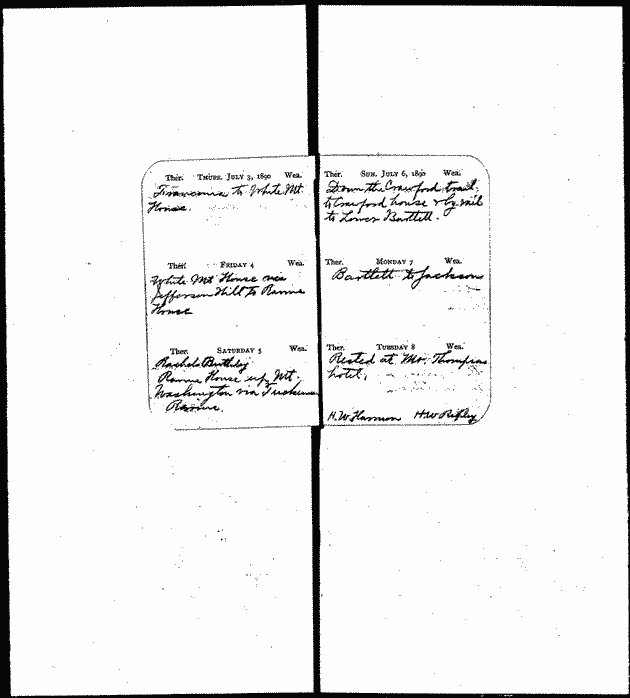 Ther. THURS. JULY 3, 1890 Wea.
Franconia to White Mt
House.
Ther. FRIDAY 4 Wea.
White Mt House via
Jefferson Hill to Ravine
House
Ther. SATURDAY 5 Wea.
Rachels Birthday
Ravine House up Mt.
Washington via Tuckerman
Ravine.
Ther. SUN. JULY 6, 1890 Wea.
Down the Crawford trail,
to Crawford house & by rail
to Lower Bartlett.
Ther. MONDAY 7 Wea.
Bartlett to Jackson
Ther. TUESDAY 8 Wea.
Rested at Mr. Thompsons
hotel.
H.W. Harmon H.W. Ripley